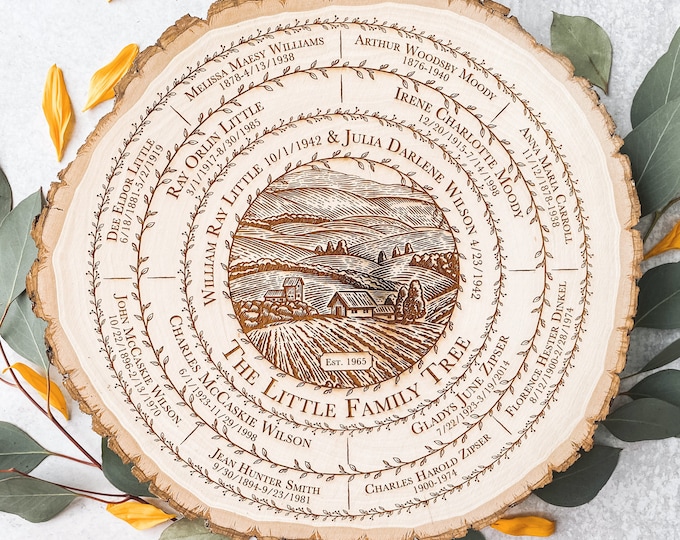 Melissa Maesy Williams
1878-4/13/1938
Arthur Woodsby Moody
1876-1940
Anna Maria Carroll
Florence Hester Dinkel
8/12/1900-2/28/1974
Charles Harold Zipser
1900-1974
Jean Hunter Smith
9/30/1894-9/23/1981
John McCaskie Wilson
10/22/1896-5/13/1970
Dee Eldor Little
6/18/1881-5/2/1919
Ray Orlin Little
3/1/1917-8/30/1985
Irene Charlotte Moody
12/20/1915-7/14/1998
Gladys June Zipser
7/22/1923-3/19/2014
Charles McCaskie Wilson
6/1/1923-11/29/1998
William Ray Little 10/1/1942 & Julia Darlene Wilson 4/23/1942
Est. 1965
The Little Family Tree